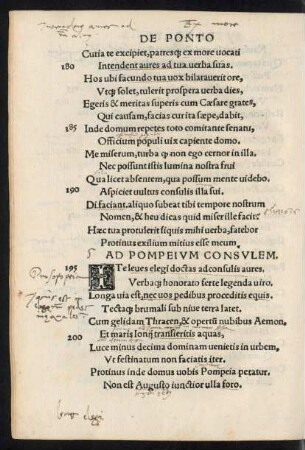 DE PONTO
Curia te excipiet, patresq; ex more uocati
180 Intendent aures ad tua uerba suas.
Hos ubi facundo tua uox hilarauerit ore,
Vtq; solet, tulerit prospera uerba dies,
Egeris & meritas superis cum Cæsare grates,
Qui causam, facias cur ita sæpe, dabit,
185 Inde domum repetes toto comitante senatu,
Officium populi uix capiente domo.
Me miserum, turba q non ego cernor in illa.
Nec possunt istis lumina nostra frui
Qua licet absentem, qua possum mente uidebo.
190 Aspiciet uultus consulis illa sui.
Di faciant, aliquo subeat tibi tempore nostrum
Nomen, & heu dicas quid miser ille facit?
Hæc tua protulerit siquis mihi uerba, fatebor
Protinus exilium mitius esse meum
5 AD POMPEIVM CONSVLEM.
195 ITe leues elegi doctas ad consulis aures,
Verbaq; honorato ferte legenda uiro.
Longa uia est, nec uos pedibus proceditis equis.
Tectaq; brumali sub niue terra latet.
Cum gelidam Thracen, & opertũ nubibus Aemon,
200 Et maris Ionij transieritis aquas,
Luce minus decima dominam uenietis in urbem,
Vt festinatum non faciatis iter.
Protinus inde domus uobis Pompeia petatur.
Non est Augusto iunctior ulla foro.